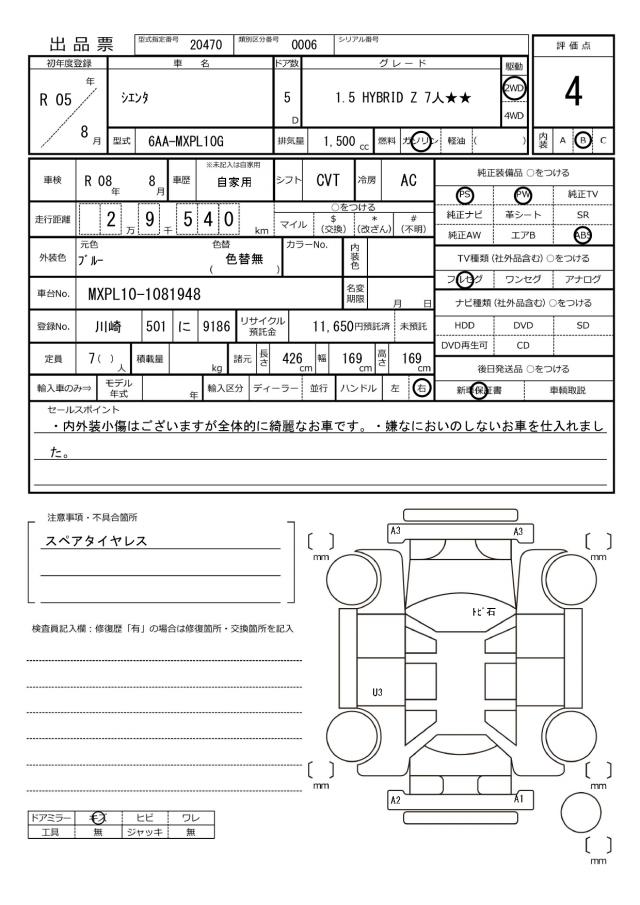 出品票 型式指定番号 20470 類別区分番号 0006 シリアル番号
評価点
4
初年度登録 車名 ドア数 グレード 駆動
R 05 年 8 月
シエンタ 5 D 1.5 HYBRID Z 7人★★ 2WD 4WD
型式 6AA-MXPL10G 排気量 1,500 cc 燃料 ガソリン 軽油 ( )
内装 A B C
車検 R 08 年 8 月 車歴 ※未記入は自家用 自家用 シフト CVT 冷房 AC
走行距離 2 万 9 千 5 4 0 km
○をつける
マイル $(交換) *(改ざん) #(不明)
外装色 元色 ブルー 色替 ( 色替無 ) カラーNo. 内装色
車台No. MXPL10-1081948 名変期限 月 日
登録No. 川崎 501 に 9186 リサイクル預託金 11,650円預託済 未預託
定員 7( ) 人 積載量 kg 諸元 長さ 426 cm 幅 169 cm 高さ 169 cm
輸入車のみ⇒ モデル年式 年 輸入区分 ディーラー 並行 ハンドル 左 右
純正装備品 ○をつける
PS PW 純正TV
純正ナビ 革シート SR
純正AW エアB ABS
TV種類(社外品含む)○をつける
フルセグ ワンセグ アナログ
ナビ種類(社外品含む)○をつける
HDD DVD SD
DVD再生可 CD
後日発送品 ○をつける
新車保証書 車輌取説
セールスポイント
・内外装小傷はございますが全体的に綺麗なお車です。・嫌なにおいのしないお車を仕入れまし
た。
注意事項・不具合箇所
スペアタイヤレス
検査員記入欄:修復歴「有」の場合は修復箇所・交換箇所を記入
A3 A3
[ ] mm [ ] mm
トビ石
U3
[ ] mm [ ] mm
A2 A1
[ ] mm
ドアミラー キズ ヒビ ワレ
工具 無 ジャッキ 無